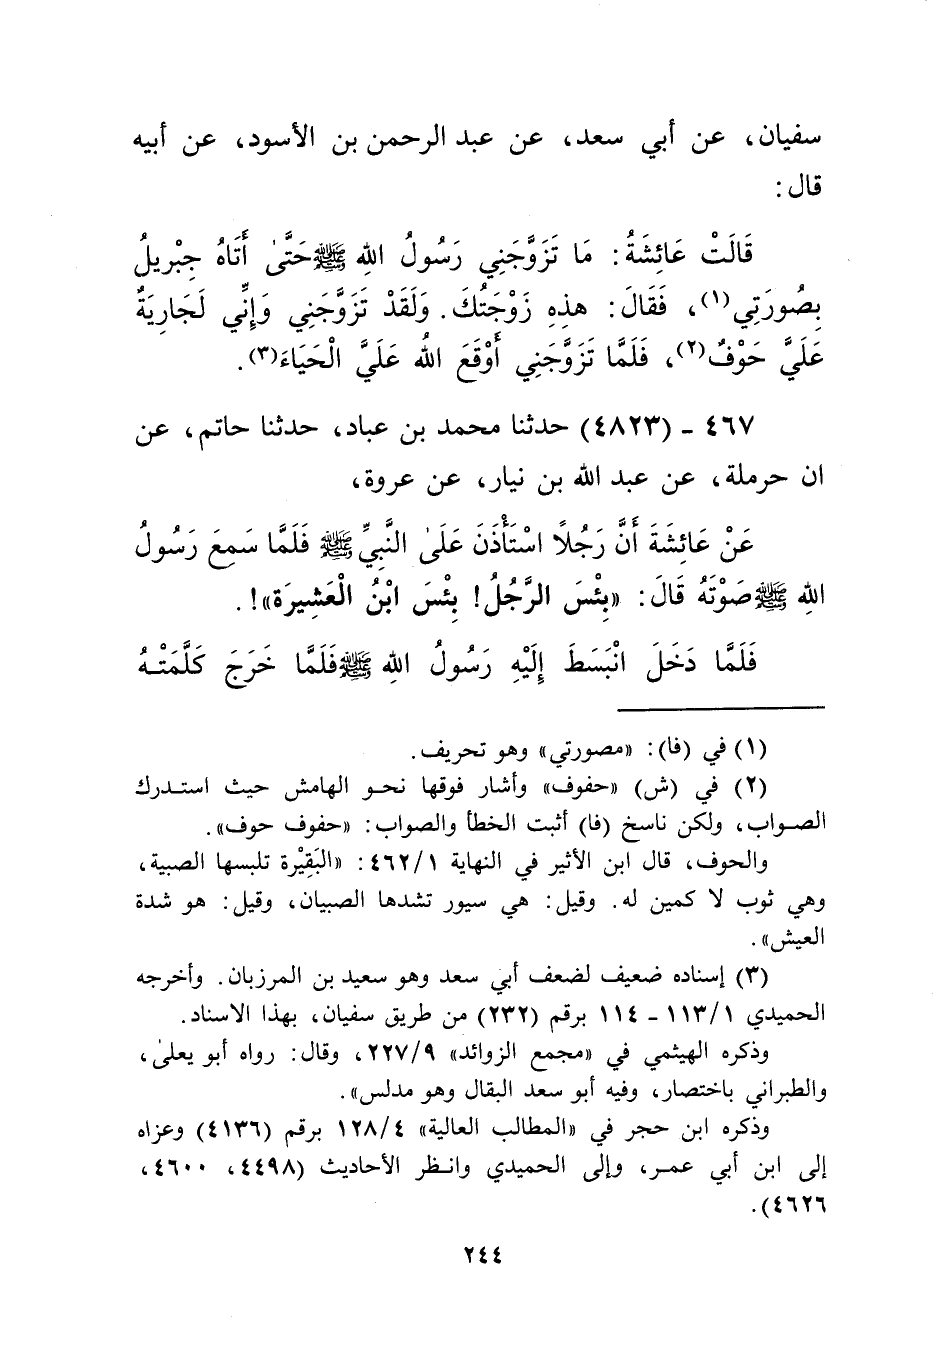 سفيان، عن أبي سعد، عن عبد الرحمن بن الأسود، عن أبيه
قال:
قَالَتْ عَائِشَةُ: مَا تَزَوَّجَنِي رَسُولُ اللهِ ﷺ حَتَّىٰ أَتَاهُ جِبْرِيلُ
بِصُورَتِي(١)، فَقَالَ: هذِهِ زَوْجَتُكَ. وَلَقَدْ تَزَوَّجَنِي وَإِنِّي لَجَارِيَةٌ
عَلَيَّ حَوْفٌ(٢)، فَلَمَّا تَزَوَّجَنِي أَوْقَعَ اللهُ عَلَيَّ الْحَيَاءَ(٣).
٤٦٧ - (٤٨٢٣) حدثنا محمد بن عباد، حدثنا حاتم، عن
ان حرملة، عن عبد الله بن نيار، عن عروة،
عَنْ عَائِشَةَ أَنَّ رَجُلاً اسْتَأْذَنَ عَلَىٰ النَّبِيِّ ﷺ فَلَمَّا سَمِعَ رَسُولُ
اللهِ ﷺ صَوْتَهُ قَالَ: «بِئْسَ الرَّجُلُ! بِئْسَ ابْنُ الْعَشِيرَة»!.
فَلَمَّا دَخَلَ انْبَسَطَ إِلَيْهِ رَسُولُ اللهِ ﷺ فَلَمَّا خَرَجَ كَلَّمَتْهُ
(١) في (فا): «مصورتي» وهو تحريف.
(٢) في (ش) «حفوف» وأشار فوقها نحو الهامش حيث استدرك
الصواب، ولكن ناسخ (فا) أثبت الخطأ والصواب: «حفوف حوف».
والحوف، قال ابن الأثير في النهاية ٤٦٢/١: «البَقِيْرة تلبسها الصبية،
وهي ثوب لا كمين له. وقيل: هي سيور تشدها الصبيان، وقيل: هو شدة
العيش».
(٣) إسناده ضعيف لضعف أبي سعد وهو سعيد بن المرزبان. وأخرجه
الحميدي ١١٣/١ - ١١٤ برقم (٢٣٢) من طريق سفيان، بهذا الاسناد.
وذكره الهيثمي في «مجمع الزوائد» ٢٢٧/٩، وقال: رواه أبو يعلىٰ،
والطبراني باختصار، وفيه أبو سعد البقال وهو مدلس».
وذكره ابن حجر في «المطالب العالية» ١٢٨/٤ برقم (٤١٣٦) وعزاه
إلى ابن أبي عمر، وإلى الحميدي وانظر الأحاديث (٤٤٩٨، ٤٦٠٠،
٤٦٢٦).
٢٤٤